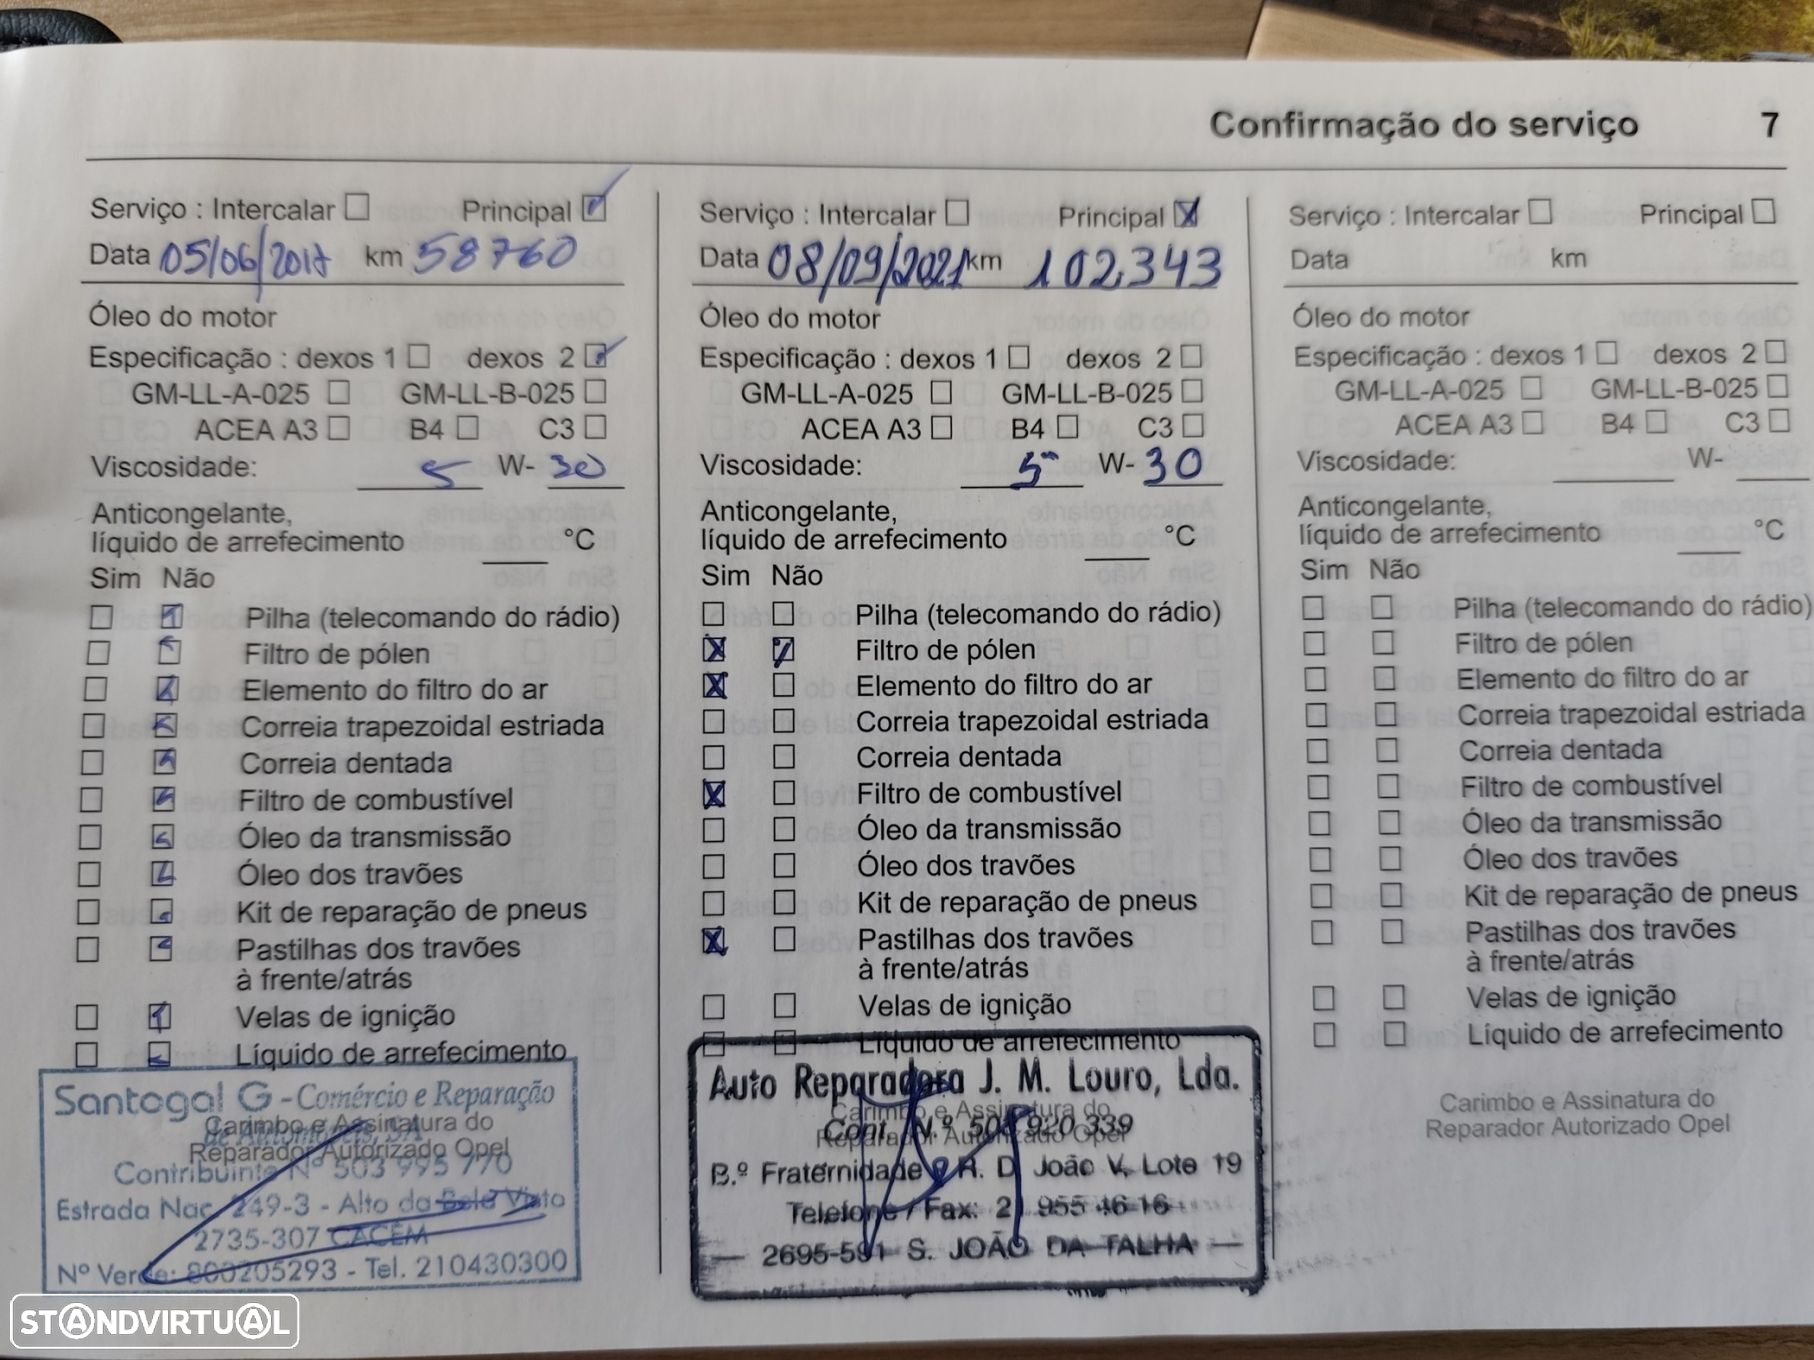 Confirmação do serviço 7
Serviço : Intercalar Principal
Data 05/06/2017 km 58760
Óleo do motor
Especificação : dexos 1 dexos 2
GM-LL-A-025 GM-LL-B-025
ACEA A3 B4 C3
Viscosidade: 5 W- 30
Anticongelante,
líquido de arrefecimento °C
Sim Não
Pilha (telecomando do rádio)
Filtro de pólen
Elemento do filtro do ar
Correia trapezoidal estriada
Correia dentada
Filtro de combustível
Óleo da transmissão
Óleo dos travões
Kit de reparação de pneus
Pastilhas dos travões
à frente/atrás
Velas de ignição
Líquido de arrefecimento
Santogal G - Comércio e Reparação
de Automóveis, SA
Carimbo e Assinatura do
Reparador Autorizado Opel
Contribuinte Nº 503 995 770
Estrada Nac. 249-3 - Alto da Bela Vista
2735-307 CACÉM
Nº Verde: 800205293 - Tel. 210430300
Serviço : Intercalar Principal
Data 08/09/2021 km 102.343
Óleo do motor
Especificação : dexos 1 dexos 2
GM-LL-A-025 GM-LL-B-025
ACEA A3 B4 C3
Viscosidade: 5 W- 30
Anticongelante,
líquido de arrefecimento °C
Sim Não
Pilha (telecomando do rádio)
Filtro de pólen
Elemento do filtro do ar
Correia trapezoidal estriada
Correia dentada
Filtro de combustível
Óleo da transmissão
Óleo dos travões
Kit de reparação de pneus
Pastilhas dos travões
à frente/atrás
Velas de ignição
Líquido de arrefecimento
Auto Reparadora J. M. Louro, Lda.
Carimbo e Assinatura do
Cont. N.º 920 339
Reparador Autorizado Opel
B.º Fraternidade R. D. João V, Lote 19
Telefone / Fax: 21 955 46 16
— 2695-591 S. JOÃO DA TALHA —
Serviço : Intercalar Principal
Data km
Óleo do motor
Especificação : dexos 1 dexos 2
GM-LL-A-025 GM-LL-B-025
ACEA A3 B4 C3
Viscosidade: W-
Anticongelante,
líquido de arrefecimento °C
Sim Não
Pilha (telecomando do rádio)
Filtro de pólen
Elemento do filtro do ar
Correia trapezoidal estriada
Correia dentada
Filtro de combustível
Óleo da transmissão
Óleo dos travões
Kit de reparação de pneus
Pastilhas dos travões
à frente/atrás
Velas de ignição
Líquido de arrefecimento
Carimbo e Assinatura do
Reparador Autorizado Opel
STANDVIRTUAL